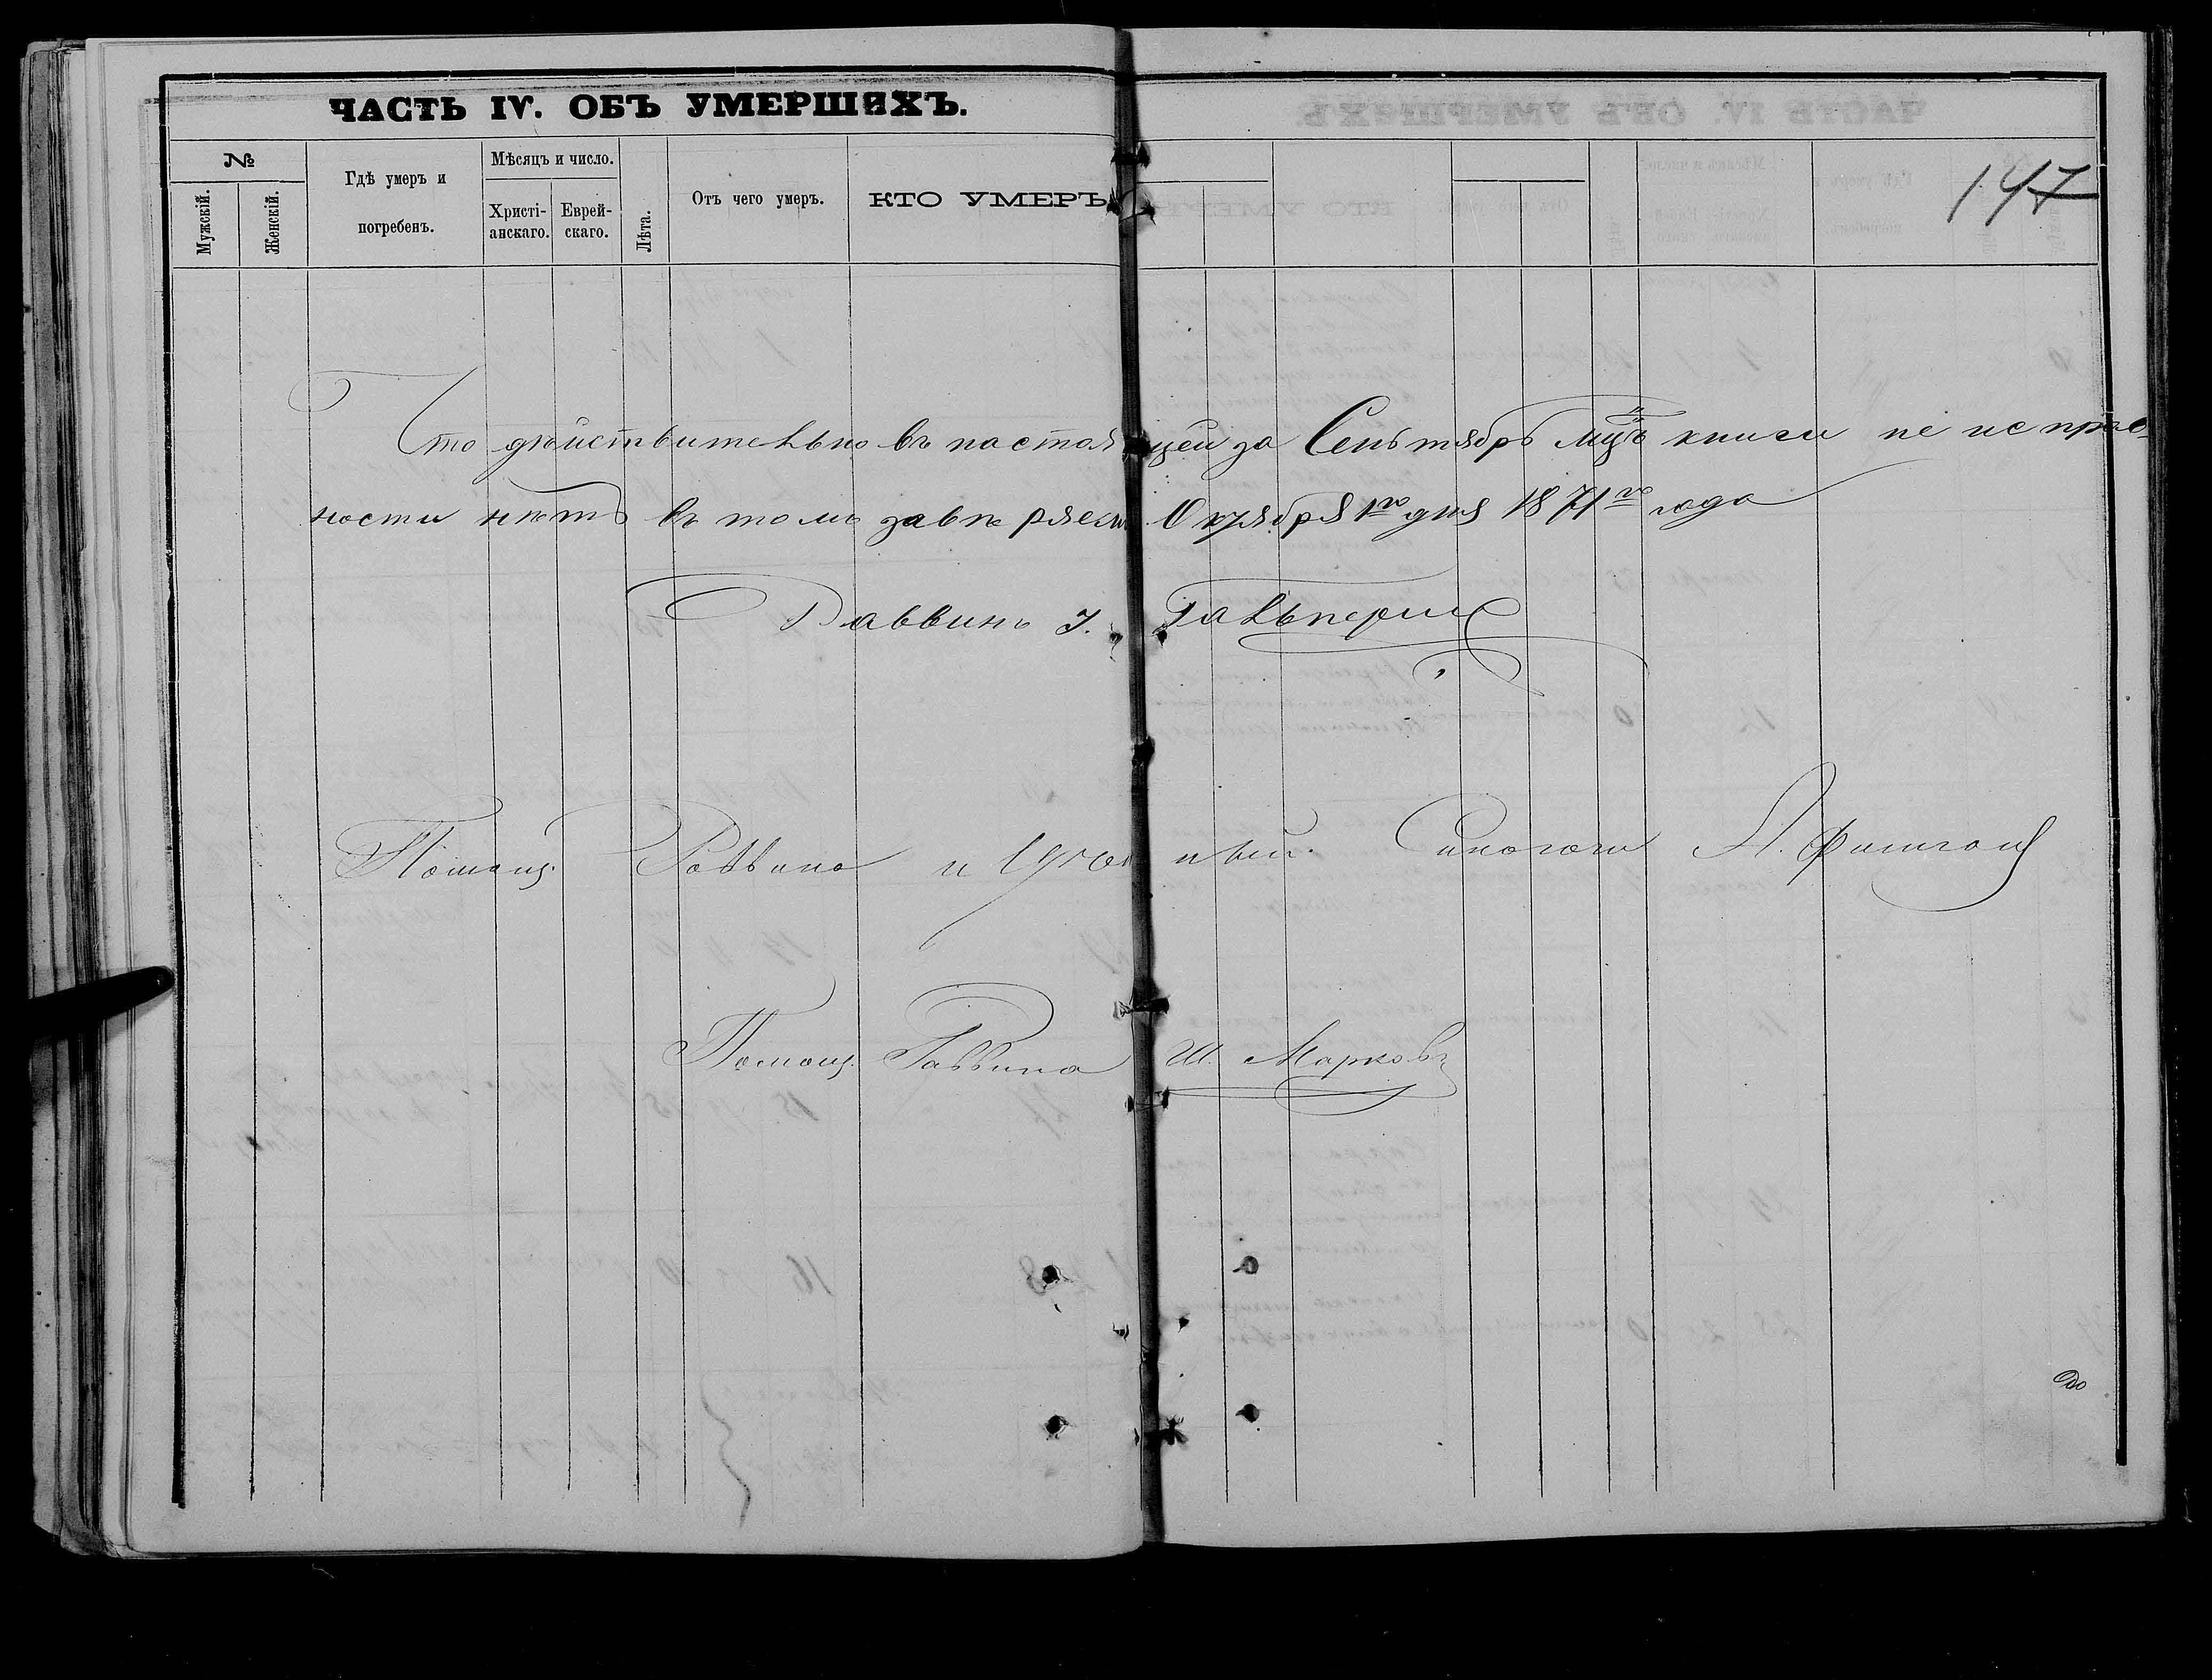 ЧАСТЬ IV. ОБЪ УМЕРШИХЪ.
147
№
Мужскій.
Женскій.
Гдѣ умеръ и
погребенъ.
Мѣсяцъ и число.
Христі-
анскаго.
Еврей-
скаго.
Лѣта.
Отъ чего умеръ.
КТО УМЕРЪ
Что дѣйствительно въ настоящей за Сентябрь мцъ книги не исправ-
ности нѣтъ въ томъ завѣряемъ Октября 1го дня 1871го года
Раввинъ І. Гальперин
Помощ. Раввина и Синогоги Л. Фишгой
Помощ. Раввина Ш. Марковъ